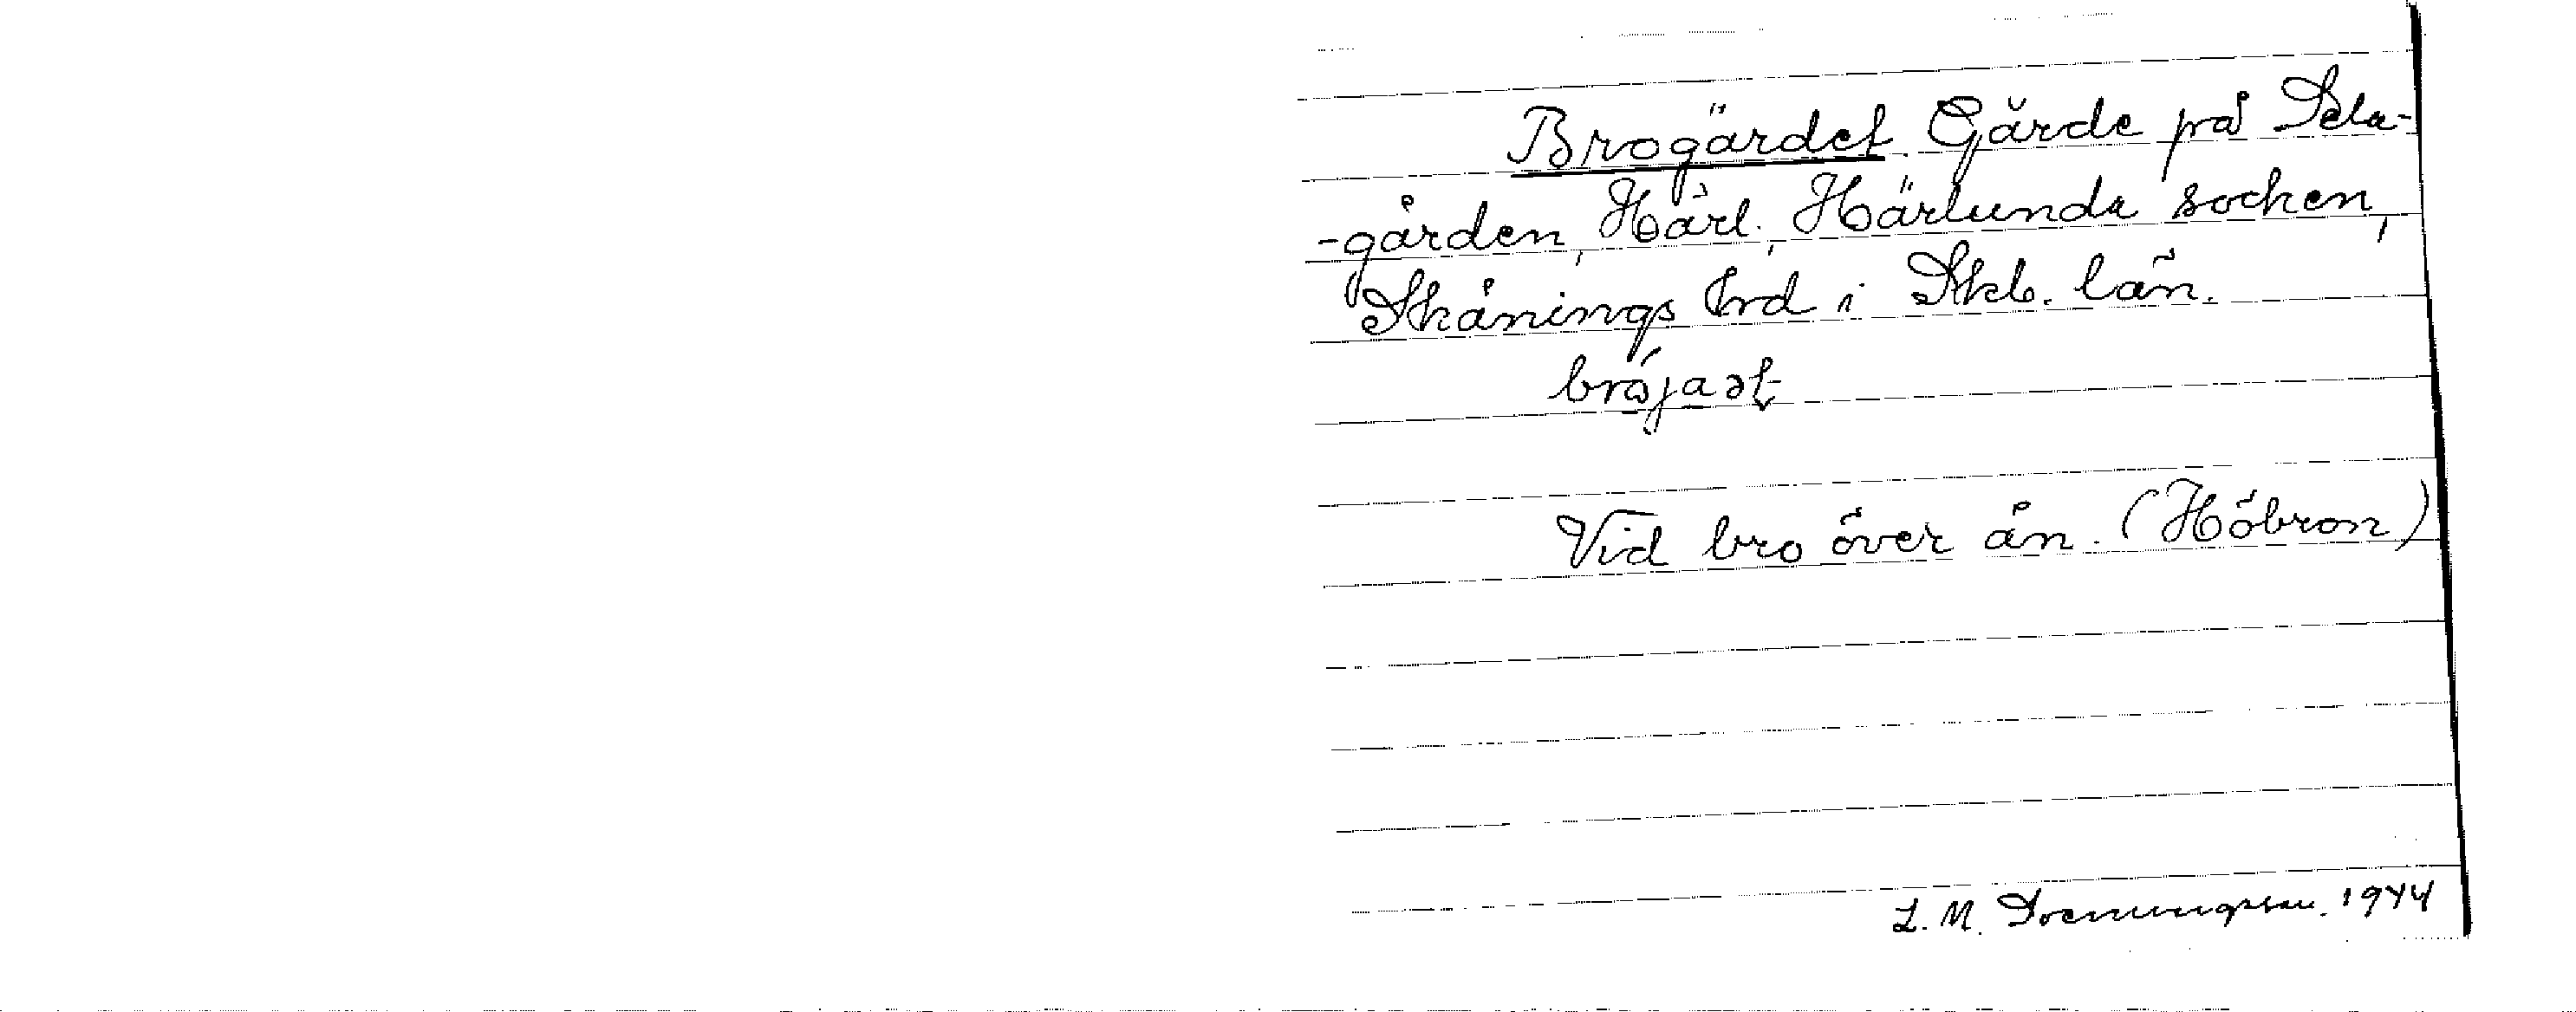 Brogärdet. Gärde på Stla-
-gården, Härl., Härlunda socken,
Skånings hrd i Skb. län.
brójaət
Vid bro över ån. (Höbron)
L. M. Svenungsson. 1944